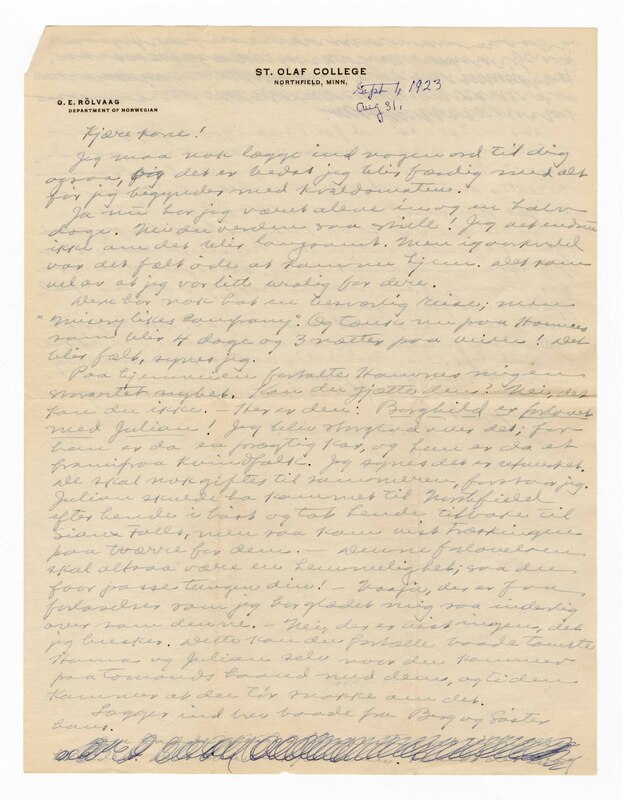 ST. OLAF COLLEGE
NORTHFIELD, MINN.
Sept 1, 1923
Aug 31,
O. E. RÖLVAAG
DEPARTMENT OF NORWEGIAN
Kjære kone!
Jeg maa nok lægge ind nogen ord til dig
ogsaa, det er bedst jeg blir færdig med alt
før jeg begynder med kveldsmaten.
Ja nu har jeg været alene in og en halv
dage. Nei du verden saa stille! Jeg vet endnu
ikke om det blir langsomt. Men igaarkveld
var det fælt øde at komme hjem. Det kom
vel av at jeg var litt urolig for dere.
Dere har nok hat en besværlig reise; men
"misery likes company". Og tænk nu paa Hannes
som blir 4 dage og 3 nætter paa veien! Det
blir fælt, synes jeg.
Paa hjemveien fortalte Hannes mig en
nyhet. Kan du gjætte den? Nei, det
kan du ikke. – Her er den: Borghild er forlovet
med Julian! Jeg blir storglad over det; for
han er da en prægtig kar, og hun er da et
kvindfolk. Jeg synes det er
De skal nok giftes til sommeren, forstaar jeg.
Julian skulde ha kommet til Northfield
efter hende i høst og tat hende tilbake til
Sioux Falls, men saa kom vist træskingen
paa tværre for dem. – Denne forlovelsen
skal altsaa være en hemmelighet; saa du
faar passe tungen din! – Naaja, der er faa
forlovelser som jeg har glædet mig saa inderlig
over som denne. – Nei, der er vist ingen, det
jeg husker. Dette kan du fortælle baade tante
Hanna og Julian selv naar du kommer
paa tomands haand med dem, og tiden
kommer at du tør snakke om det.
Lægger ind her baade fra Berg og Søster
hans.